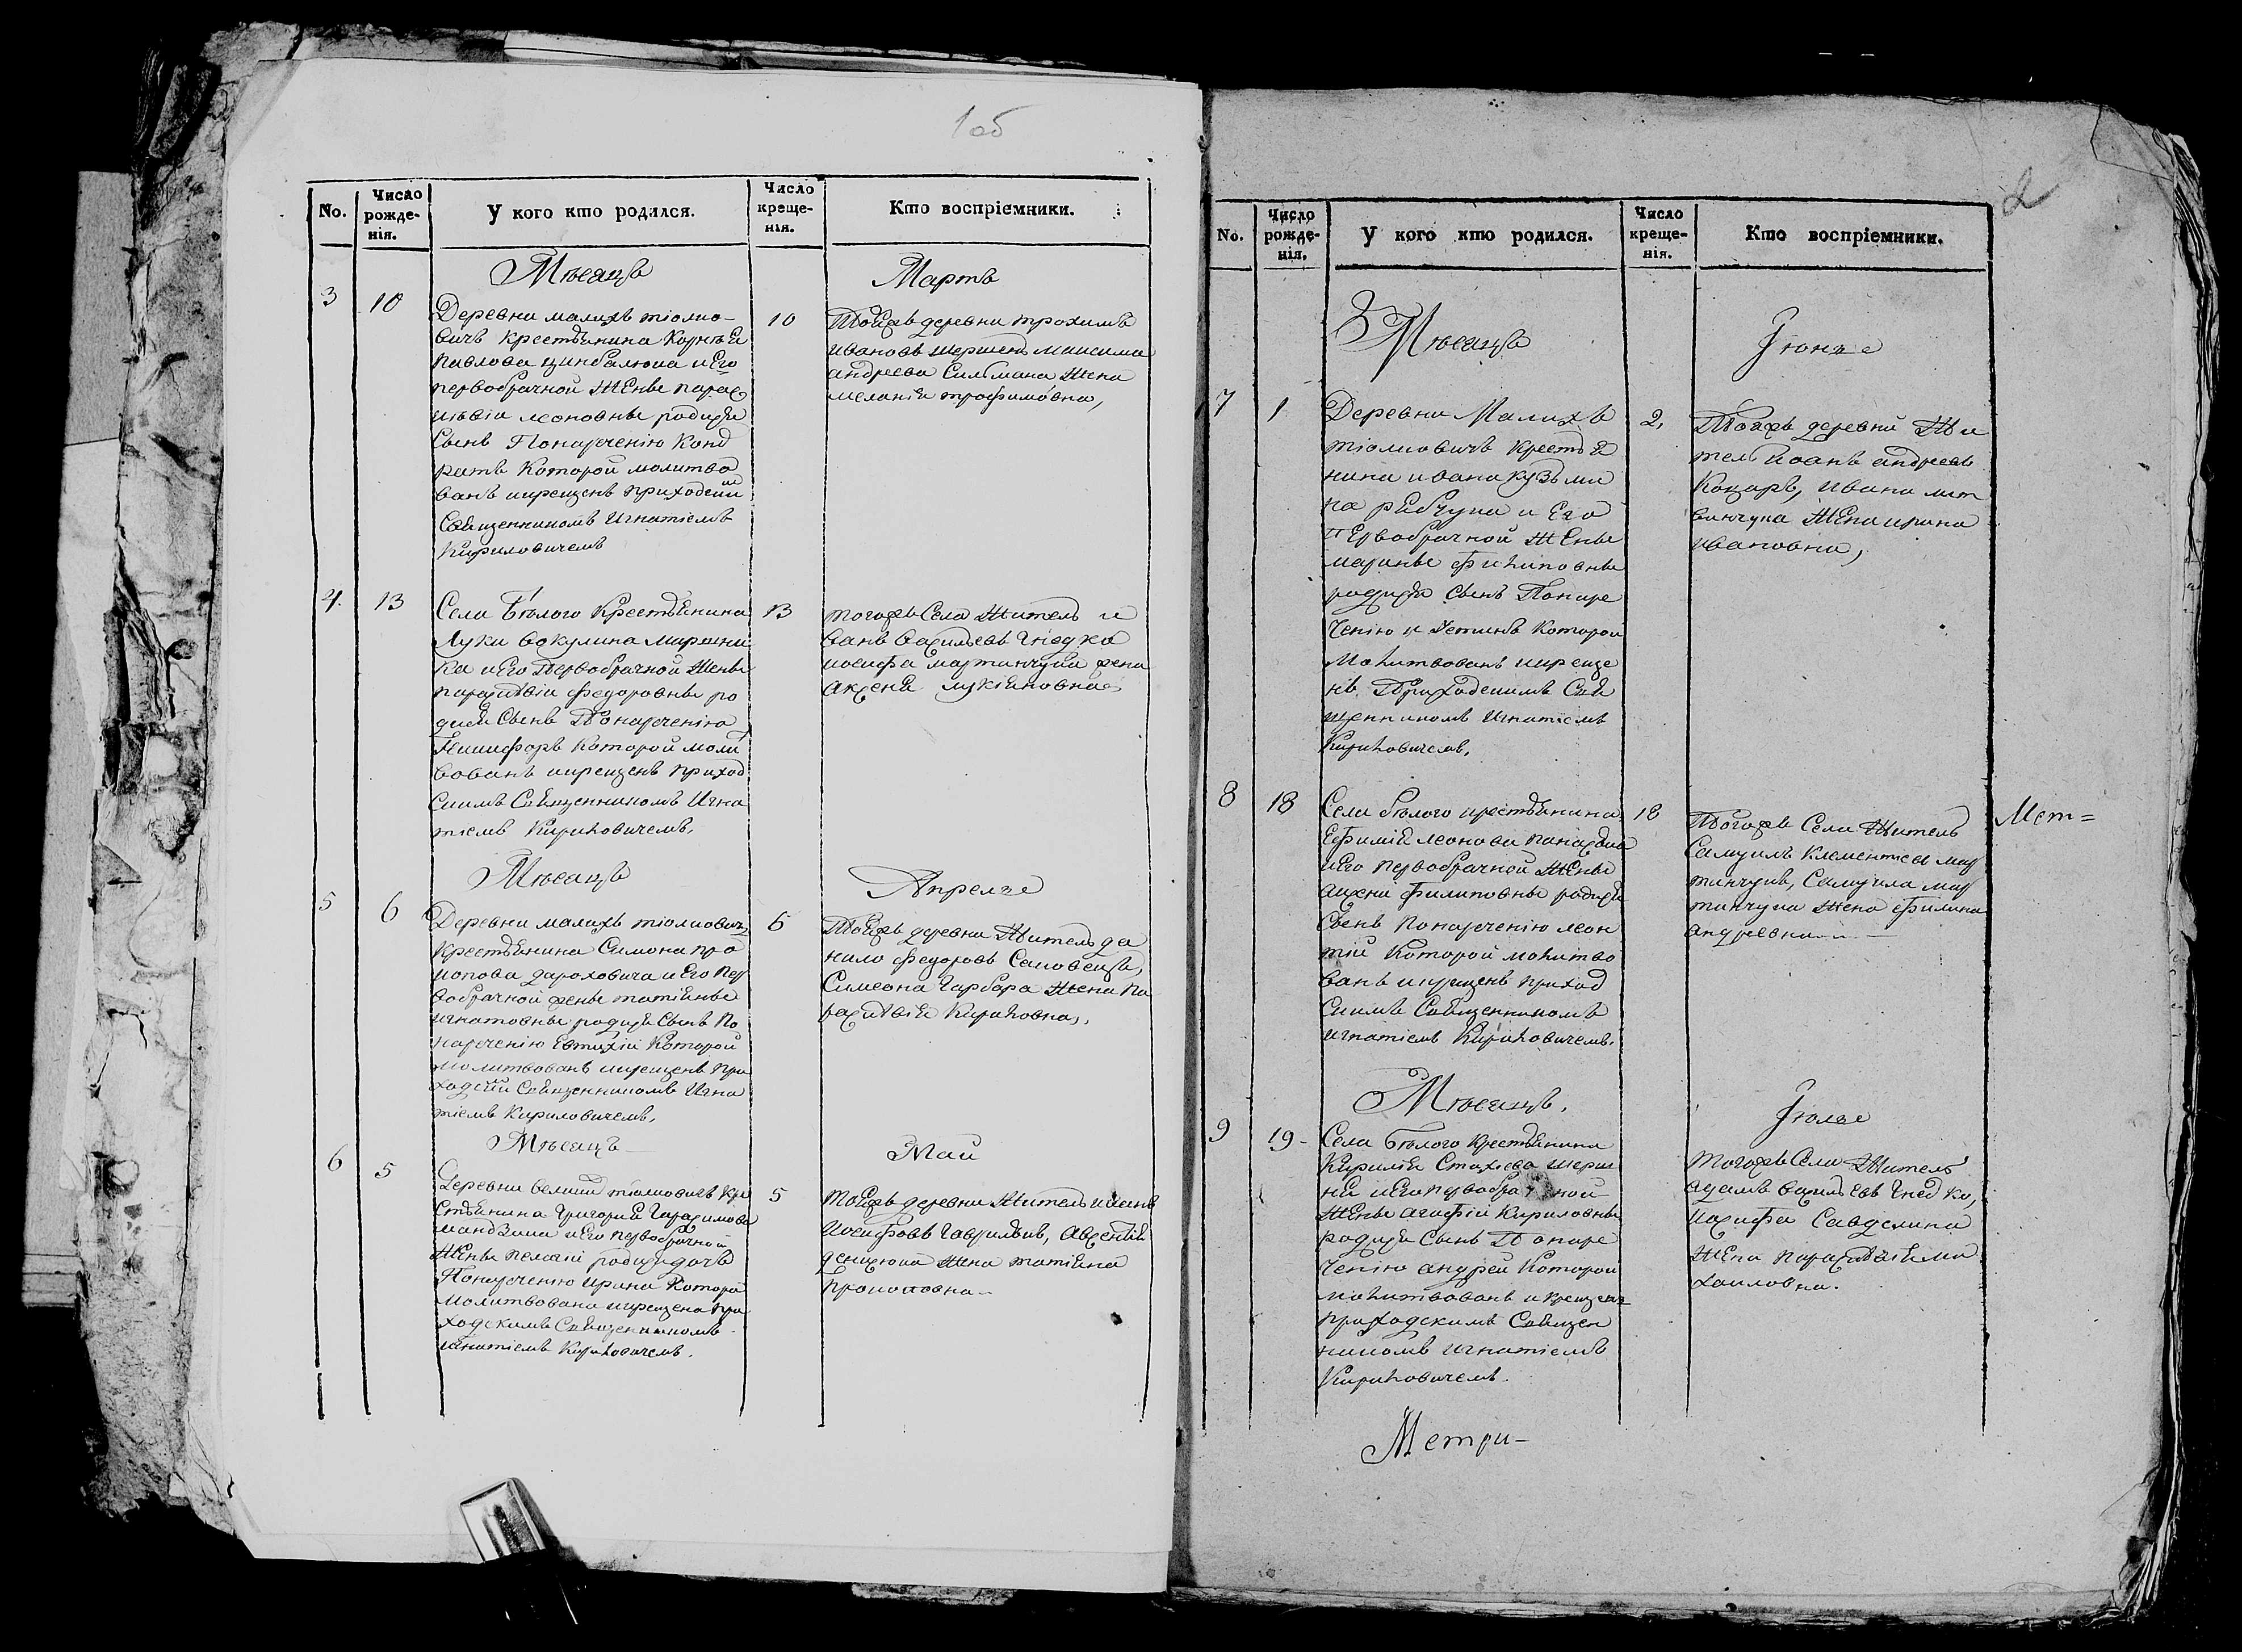 1об
No.
Число рожде-нія.
У кого кто родился.
Число креще-нія.
Кто воспріемники.
Мѣсяцъ
Мартъ
3
10
Деревни малихъ тіолко-
вичъ крестьянина Корнѣя
павлова цинбалюка и Его
первобрачной Жены парас
кѣвіи леоновны родился
Сынъ Понареченію Конд
ратъ Которой молитво
ванъ икрещенъ приходским
Священникомъ Игнатіемъ
Кириловичемъ
10
Тойжъ деревни трохимъ
Ивановъ шершень максима
андреева Сильмана Жена
меланія трофимовна,
4.
13
Села Бѣлого Крестьянина
Луки вакулина Мирошни
ка и Его Первобрачной Жены
параскѣвіи федоровны ро
дился Сынъ Понареченію
Никифоръ Которой моли
вованъ икрещенъ приход
скимъ Священникомъ Игна
тіемъ Кириловичемъ,
13
тогожъ Села Житель и
ванъ васильевъ Гнедко
иосифа мартинчука жена
Аксеня лукіяновна
Мѣсяцъ
Апрелье
5
6
Деревни малихъ тіолковичъ
Крестьянина Симона про
копова дароховича и Его Пер
вобрачной жены татіяны
игнатовны родился Сынъ По
нареченію Евтихій Которой
Молитвованъ икрещенъ при
ходски Священникомъ Игна
тіемъ Кириловичемъ,
6
Тойжъ деревни Житель да
нило федоровъ Саковецъ,
Симеона Гарбара Жена Па
раскѣвія Кириловна,
Мѣсяцъ
Май
6
5
Деревни велики тіолковичъ Кре
стьянина Григорія Гарасимова
мандзюка и Его первобрачной
Жены пелагіи родилидочь
Понареченію ирина Котора
Молитвована икрещена при
ходскимъ Священникомъ
игнатіемъ Кириловичемъ.
5
Тойжъ деревни Житель иванъ
иосифовъ Гаврильчик, Авксентія
денисюка Жена татіяна
прокоповна
2
No.
Число рожде-нія.
У кого кто родился.
Число креще-нія.
Кто воспріемники.
Мѣсяцъ
Іюнье
7
1
Деревни Малихъ
тіолковичъ крестья
нина ивана кузьми
на рябчука и Его
Первобрачной Жены
марины филиповны
родился Сынъ Понаре
ченію и Устинъ Которой
Молитвованъ икреще
нъ Приходскимъ Свя
щенникомъ Игнатіемъ
Кириловичемъ,
2,
Тойжъ деревни Жи
тель Иоанъ андреевъ
Коцаръ, ивана лит
винчука Жена ирина
ивановна,
8
18
Села бѣлого крестьянина
Ефимія леонова панасюка
иЕго Первобрачной Жены
аксени филиповны родился
Сынъ Понареченію леон
тій Которой молитво
ванъ икрещенъ приход
Скимъ Священникомъ
игнатіемъ Кириловичемъ.
18
Тогожъ Села Житель
Самуилъ Клементіевъ мар
тинчукъ, Самуила мар
тинчука Жена ефимия
андреевна
Мет=
Мѣсяцъ.
Іюлье
9
19-
Села Бѣлого Крестьянина
Кирилія Стахіева шерш
ня иЕго первобрачной
Жены агафіи Кириловны
родился Сынъ Понаре
ченію андрей Которой
молитвованъ и крещенъ
приходскимъ Священ
никомъ игнатіемъ
Кириловичемъ.
тогожъ Села Житель
адамъ василь евъ Гнедко,
иосифа Савделика
Жена параскѣвія ми
хаиловна.
Метри-